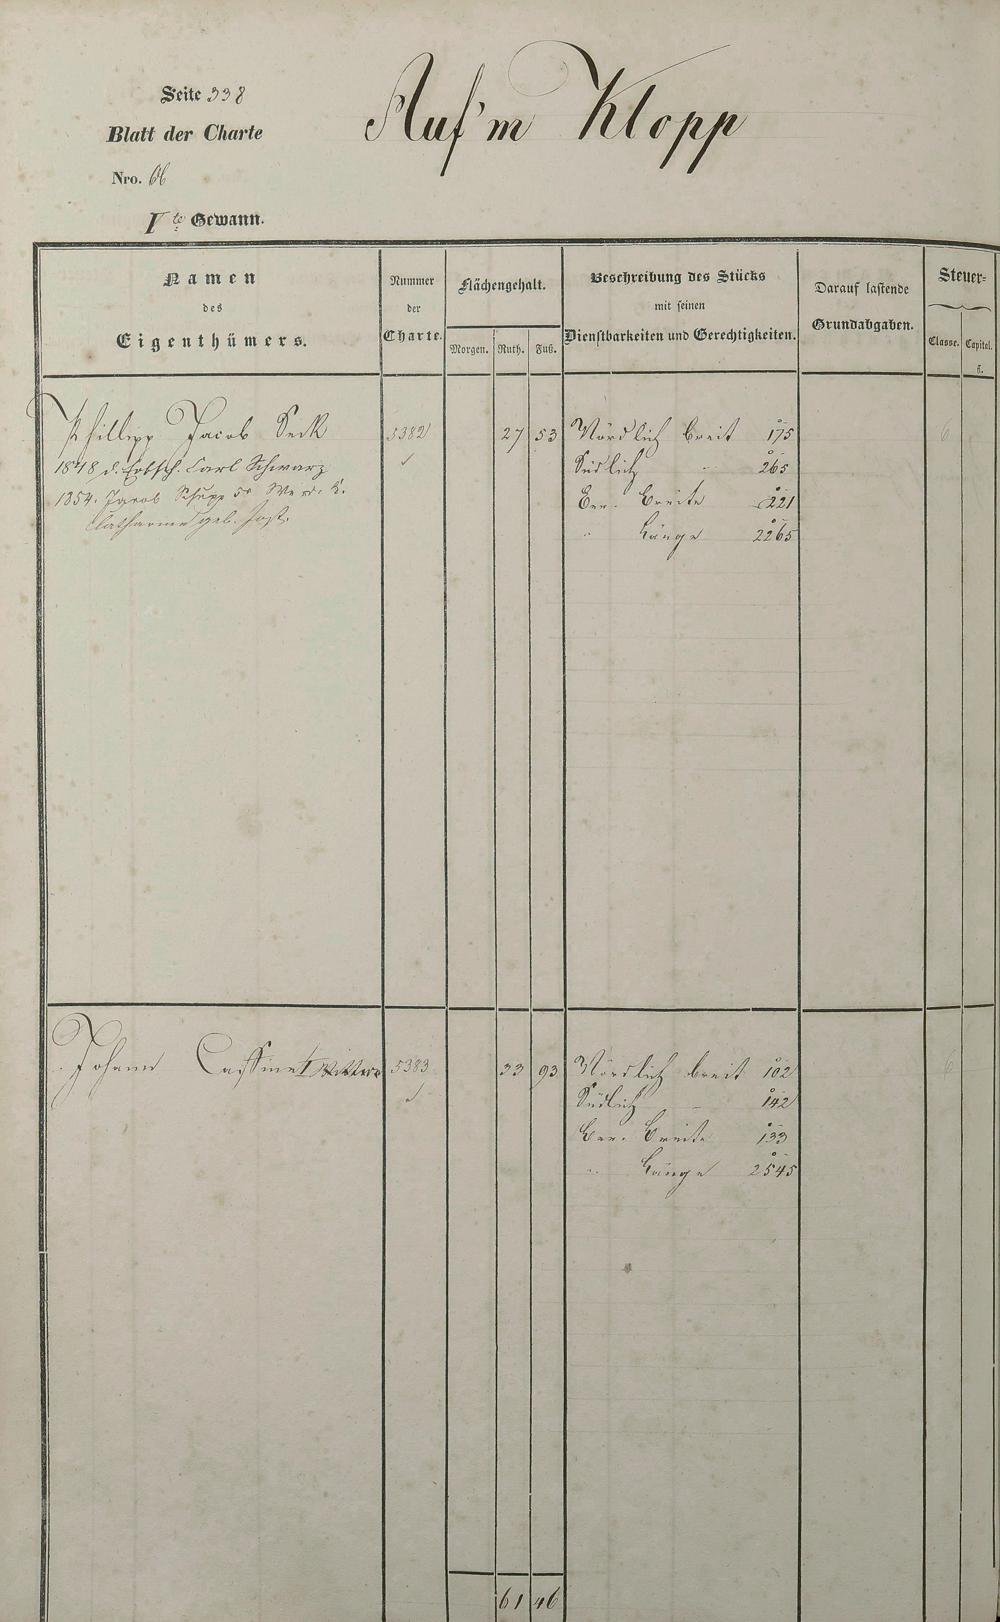 Seite 338
Auf'm Klopp
Blatt der Charte
Nro. 66
Ite Gewann.
Namen des Eigenthümers.
Nummer der Charte.
Flächengehalt.
Morgen. Ruth. Fuß.
Beschreibung des Stücks mit seinen Dienstbarkeiten und Gerechtigkeiten.
Darauf lastende Grundabgaben.
Steuer=
Classe. Capital. fl.
Phillipp Jacob Seck 5382 27 53 Nördlich breit 175 6
1848 d. Erbsch. Carl Schwarz Südlich " 265
1854. Jacob Schupp Ber. Breite 221
Catharine geb. Jost. " Länge 2265
Johann 5383 33 93 Nördlich breit 102 6
Südlich 142
Ber. Breite 133
" Länge 2545
61 46